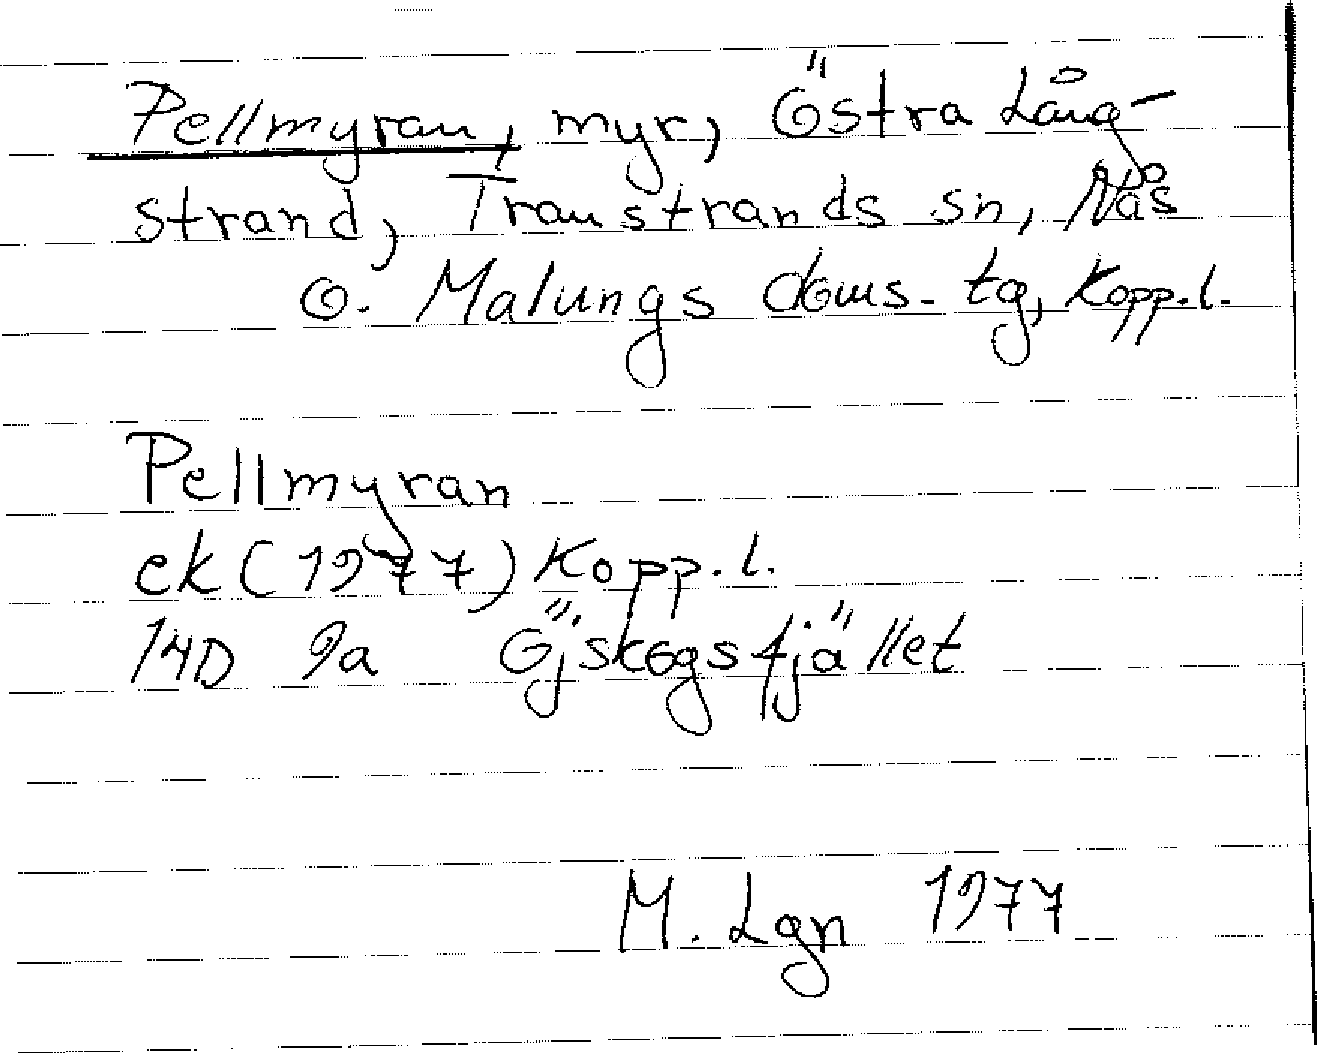 Pellmyran, myr, Östra Lång-
strand, Transtrands sn, Nås
o. Malungs doms. tg, Kopp.l.
Pellmyran
ek (1977) Kopp.l.
14D 9a Öjskogsfjället
M. Lgn 1977